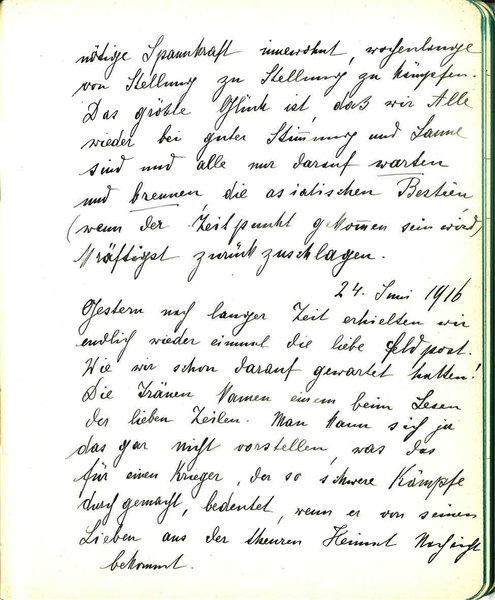 nötige Spannkraft innewohnt, wochenlange
von Stellung zu Stellung zu kämpfen.
Das größte Glück ist, daß wir Alle
wieder bei guter Stimmung und Laune
sind und alle nur darauf warten
und brennen, die asiatischen Bestien,
(wenn der Zeitpunkt gekommen sein wird)
kräftigst zurückzuschlagen.
24. Juni 1916
Gestern nach langer Zeit erhielten wir
endlich wieder einmal die liebe Feldpost.
Wie wir schon darauf gewartet hatten!
Die Tränen kamen einem beim Lesen
der lieben Zeilen. Man kann sich ja
das gar nicht vorstellen, was das
für einen Krieger, der so schwere Kämpfe
durchgemacht, bedeutet, wenn er von seinen
Lieben aus der theuren Heimat Nachricht
bekommt.